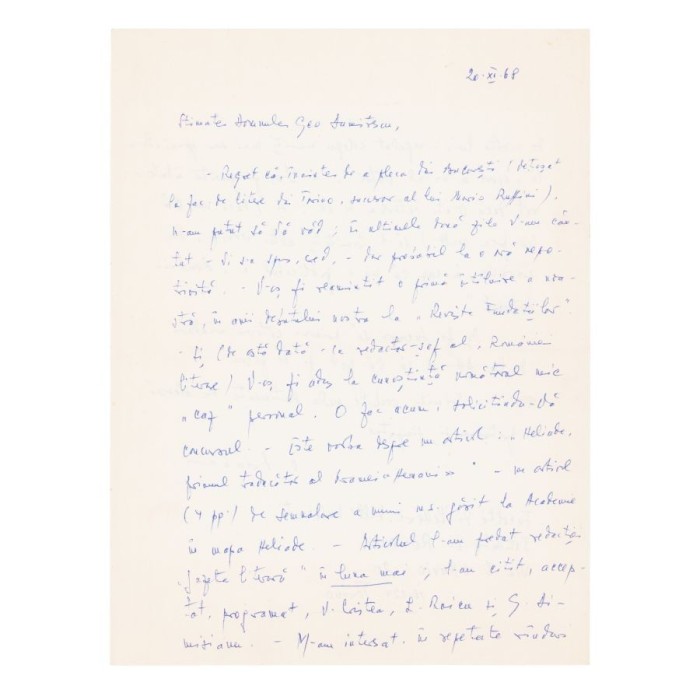 20-XI-68
Stimate Domnule Geo Dumitrescu,
- Regret că, înainte de a pleca din București (detașat
la fac. de litere din Torino, succesor al lui Mario Ruffini),
n-am putut să vă văd; în ultimele două zile v-am cău-
tat - vi s-a spus, cred, - dar probabil la o oră nepo-
trivită. - V-aș fi reamintit o primă întâlnire a noa-
stră, în anii debutului nostru la „Revista Fundațiilor"
- Și (de astă dată - ca redactor-șef al „României
literare) V-aș fi adus la cunoștință următorul mic
„caz" personal. O fac acum, solicitându-Vă
concursul. - Este vorba despre un articol: „Heliade,
primul traducător al dramei «Hernani»" - un articol
(4 pp.) de semnalare a unui ms. găsit la Academie
în mapa Heliade. - Articolul l-am predat redacției
„Gazeta literară" în luna mai; l-au citit, accep-
tat, programat, V. Cristea, L. Raicu și G. Di-
misianu. - M-am interesat în repetate rânduri